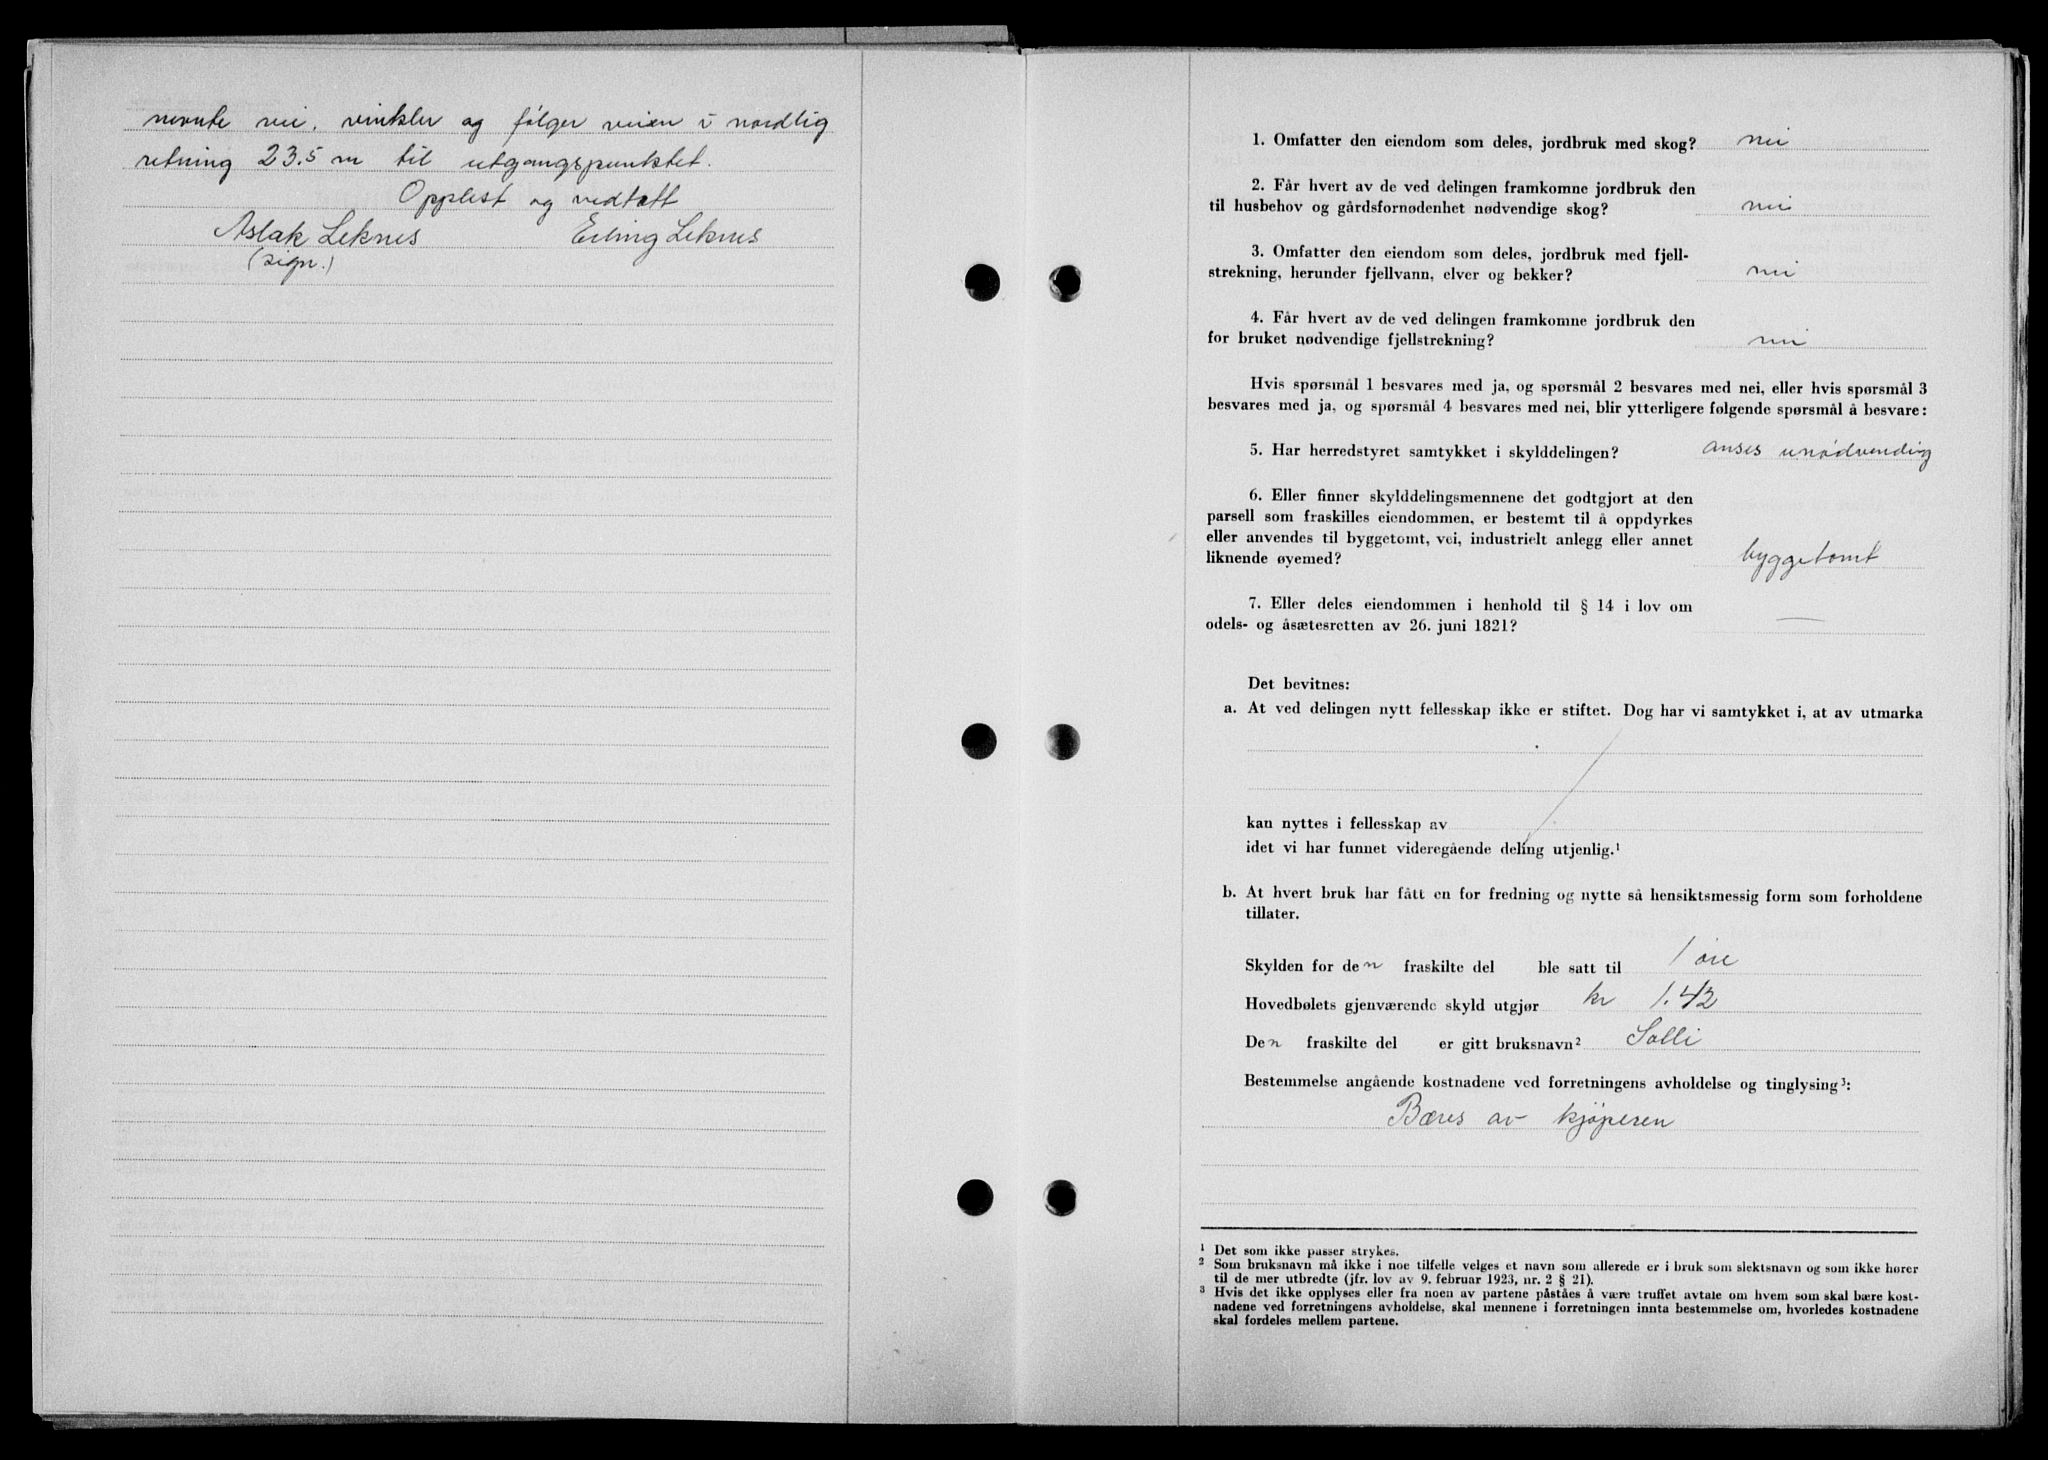 nevnte vei, vinkler og følger veien i nordlig
retning 23.5 m til utgangspunktet.
Opplest og vedtatt
Aslak Leknes Erling Leknes
(sign.)
1. Omfatter den eiendom som deles, jordbruk med skog? nei
2. Får hvert av de ved delingen framkomne jordbruk den
til husbehov og gårdsfornødenhet nødvendige skog? nei
3. Omfatter den eiendom som deles, jordbruk med fjell-
strekning, herunder fjellvann, elver og bekker? nei
4. Får hvert av de ved delingen framkomne jordbruk den
for bruket nødvendige fjellstrekning? nei
Hvis spørsmål 1 besvares med ja, og spørsmål 2 besvares med nei, eller hvis spørsmål 3
besvares med ja, og spørsmål 4 besvares med nei, blir ytterligere følgende spørsmål å besvare:
5. Har herredstyret samtykket i skylddelingen? anses unødvendig
6. Eller finner skylddelingsmennene det godtgjort at den
parsell som fraskilles eiendommen, er bestemt til å oppdyrkes
eller anvendes til byggetomt, vei, industrielt anlegg eller annet
liknende øyemed? byggetomt
7. Eller deles eiendommen i henhold til § 14 i lov om
odels- og åsætesretten av 26. juni 1821? —
Det bevitnes:
a. At ved delingen nytt fellesskap ikke er stiftet. Dog har vi samtykket i, at av utmarka
kan nyttes i fellesskap av
idet vi har funnet videregående deling utjenlig.¹
b. At hvert bruk har fått en for fredning og nytte så hensiktsmessig form som forholdene
tillater.
Skylden for den fraskilte del ble satt til 1 øre
Hovedbølets gjenværende skyld utgjør kr 1.42
Den fraskilte del er gitt bruksnavn² Solli
Bestemmelse angående kostnadene ved forretningens avholdelse og tinglysing³:
Bæres av kjøperen
¹ Det som ikke passer strykes.
² Som bruksnavn må ikke i noe tilfelle velges et navn som allerede er i bruk som slektsnavn og som ikke hører
til de mer utbredte (jfr. lov av 9. februar 1923, nr. 2 § 21).
³ Hvis det ikke opplyses eller fra noen av partene påståes å være truffet avtale om hvem som skal bære kost-
nadene ved forretningens avholdelse, skal mennene i forretningen innta bestemmelse om, hvorledes kostnadene
skal fordeles mellem partene.